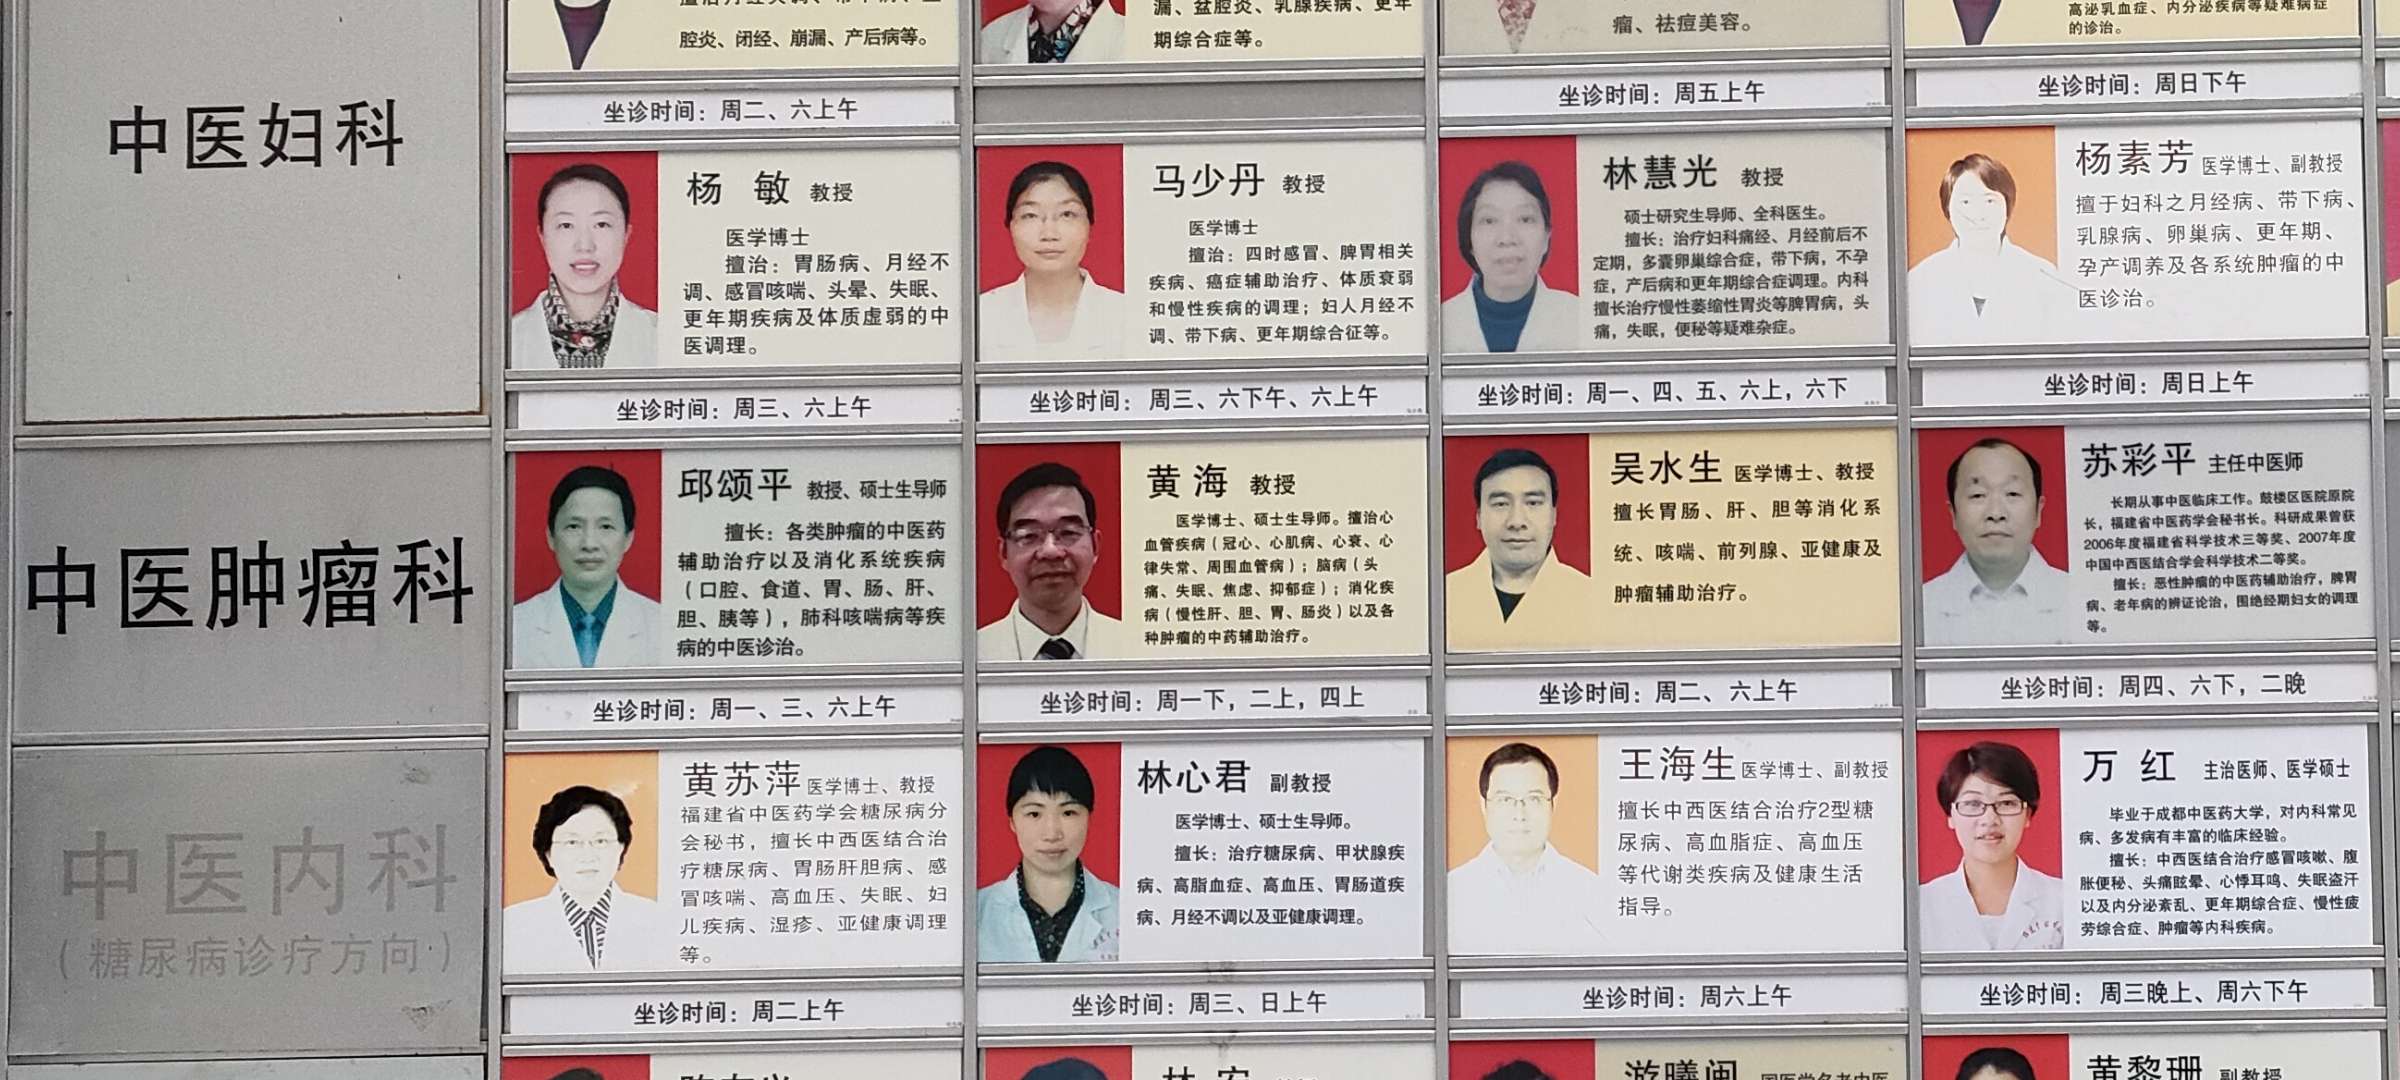 腔炎、闭经、崩漏、产后病等。
漏、盆腔炎、乳腺疾病、更年
期综合症等。
瘤、祛痘美容。
高泌乳血症、内分泌疾病等疑难病症
的诊治。
中医妇科
坐诊时间：周二、六上午
坐诊时间：周五上午
坐诊时间：周日下午
杨 敏 教授
医学博士
擅治：胃肠病、月经不
调、感冒咳喘、头晕、失眠、
更年期疾病及体质虚弱的中
医调理。
坐诊时间：周三、六上午
马少丹 教授
医学博士
擅治：四时感冒、脾胃相关
疾病、癌症辅助治疗、体质衰弱
和慢性疾病的调理；妇人月经不
调、带下病、更年期综合征等。
坐诊时间：周三、六下午、六上午
林慧光 教授
硕士研究生导师、全科医生。
擅长：治疗妇科痛经、月经前后不
定期，多囊卵巢综合症，带下病，不孕
症，产后病和更年期综合症调理。内科
擅长治疗慢性萎缩性胃炎等脾胃病，头
痛，失眠，便秘等疑难杂症。
坐诊时间：周一、四、五、六上，六下
杨素芳 医学博士、副教授
擅于妇科之月经病、带下病、
乳腺病、卵巢病、更年期、
孕产调养及各系统肿瘤的中
医诊治。
坐诊时间：周日上午
中医肿瘤科
邱颂平 教授、硕士生导师
擅长：各类肿瘤的中医药
辅助治疗以及消化系统疾病
（口腔、食道、胃、肠、肝、
胆、胰等），肺科咳喘病等疾
病的中医诊治。
坐诊时间：周一、三、六上午
黄海 教授
医学博士、硕士生导师。擅治心
血管疾病（冠心、心肌病、心衰、心
律失常、周围血管病）；脑病（头
痛、失眠、焦虑、抑郁症）；消化疾
病（慢性肝、胆、胃、肠炎）以及各
种肿瘤的中药辅助治疗。
坐诊时间：周一下，二上，四上
吴水生 医学博士、教授
擅长胃肠、肝、胆等消化系
统、咳喘、前列腺、亚健康及
肿瘤辅助治疗。
坐诊时间：周二、六上午
苏彩平 主任中医师
长期从事中医临床工作。鼓楼区医院原院
长，福建省中医药学会秘书长。科研成果曾获
2006年度福建省科学技术三等奖、2007年度
中国中西医结合学会科学技术二等奖。
擅长：恶性肿瘤的中医药辅助治疗，脾胃
病、老年病的辨证论治，围绝经期妇女的调理
等。
坐诊时间：周四、六下，二晚
中医内科
（糖尿病诊疗方向）
黄苏萍 医学博士、教授
福建省中医药学会糖尿病分
会秘书，擅长中西医结合治
疗糖尿病、胃肠肝胆病、感
冒咳喘、高血压、失眠、妇
儿疾病、湿疹、亚健康调理
等。
坐诊时间：周二上午
林心君 副教授
医学博士、硕士生导师。
擅长：治疗糖尿病、甲状腺疾
病、高脂血症、高血压、胃肠道疾
病、月经不调以及亚健康调理。
坐诊时间：周三、日上午
王海生 医学博士、副教授
擅长中西医结合治疗2型糖
尿病、高血脂症、高血压
等代谢类疾病及健康生活
指导。
坐诊时间：周六上午
万 红 主治医师、医学硕士
毕业于成都中医药大学，对内科常见
病、多发病有丰富的临床经验。
擅长：中西医结合治疗感冒咳嗽、腹
胀便秘、头痛眩晕、心悸耳鸣、失眠盗汗
以及内分泌紊乱、更年期综合症、慢性疲
劳综合症、肿瘤等内科疾病。
坐诊时间：周三晚上、周六下午
游曦闽
黄黎珊 副教授